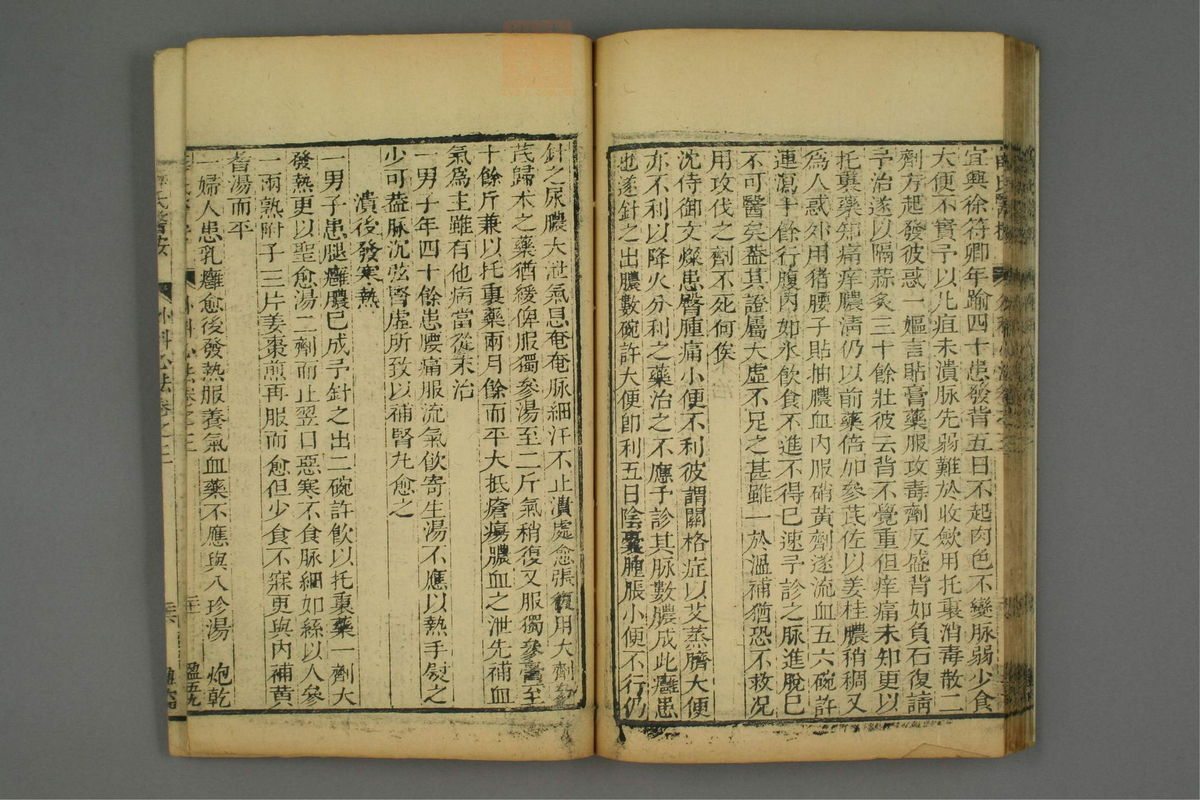 宜興徐符卿年踰四十患發背五日不起肉色不變脉弱少食
大便不實予以凡疽未潰脉先弱難於收斂用托裏消毒散二
劑方起發彼惑一嫗言貼膏藥服攻毒劑反盛背如負石復請
予治遂以隔蒜灸三十餘壯彼云背不覺重但痒痛未知更以
托裏藥知痛痒膿清仍以前藥倍加參芪佐以姜桂膿稍稠又
為人惑外用猪腰子貼抽膿血內服硝黃劑遂流血五六碗許
連瀉十餘行腹內如氷飲食不進不得巳速予診之脉進脫巳
不可醫矣葢其證屬大虛不足之甚雖一於溫補猶恐不救况
用攻伐之劑不死何俟
沈侍御文燦患臀腫痛小便不利彼謂關格症以艾蒸臍大便
亦不利以降火分利之藥治之不應予診其脉數膿成此癰患
也遂針之出膿數碗許大便即利五日陰囊腫脹小便不行仍
針之尿膿大泄氣息奄奄脉細汗不止潰處愈張復用大劑參
芪歸术之藥猶緩俾服獨參湯至二斤氣稍復又服獨參膏至
十餘斤兼以托裏藥兩月餘而平大抵瘡瘍膿血之泄先補血
氣為主雖有他病當從末治
一男子年四十餘患腰痛服流氣飲寄生湯不應以熱手熨之
少可葢脉沉弦腎虛所致以補腎丸愈之
潰後發寒熱
一男子患腿癰膿巳成予針之出二碗許飲以托裏藥一劑大
發熱更以聖愈湯二劑而止翌口惡寒不食脉細如絲以人參
一兩熟附子三片姜棗煎再服而愈但少食不寐更與內補黃
耆湯而平
一婦人患乳癰愈後發熱服養氣血藥不應與八珍湯 炮乾
薛氏醫按 外科心法卷之三